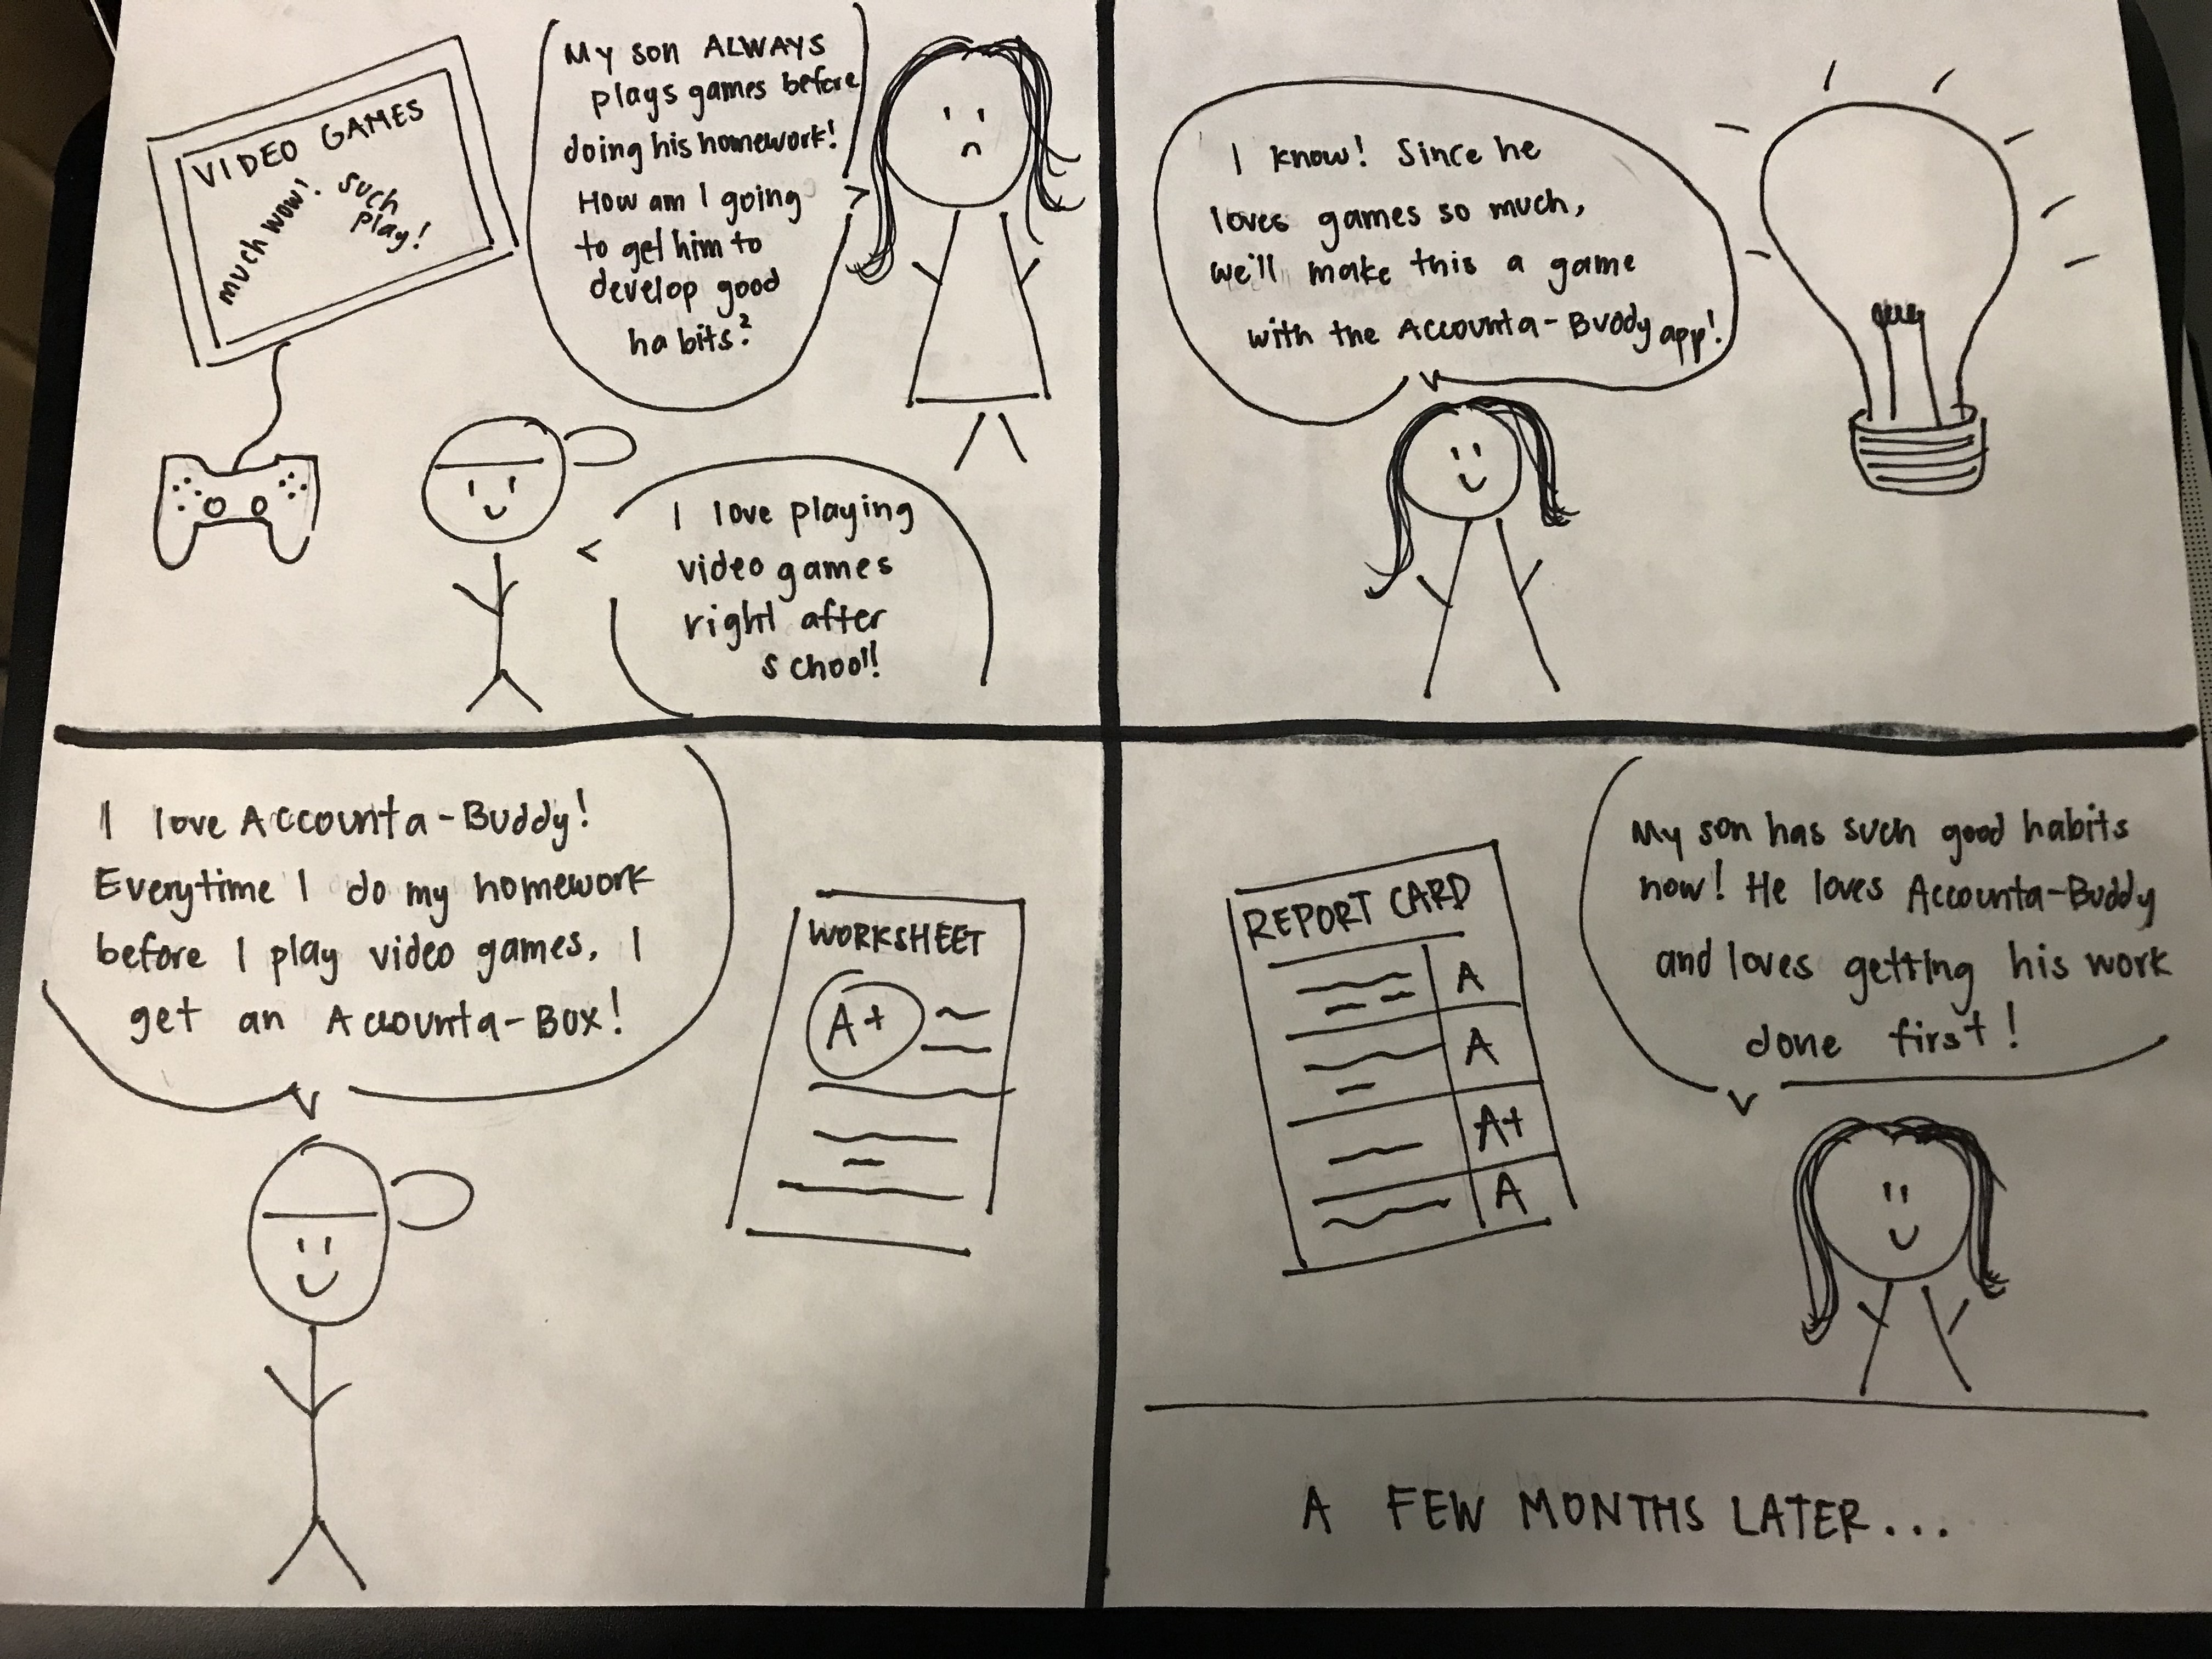 VIDEO GAMES
much wow!
such
play!
My son ALWAYS
plays games before
doing his homework!
How am I going
to get him to
develop good
habits?
I love playing
video games
right after
school!
I know! Since he
loves games so much,
we'll make this a game
with the Accounta-Buddy app!
I love Accounta-Buddy!
Everytime I do my homework
before I play video games, I
get an Accounta-Box!
WORKSHEET
A+
REPORT CARD
A
A
A+
A
My son has such good habits
now! He loves Accounta-Buddy
and loves getting his work
done first!
A FEW MONTHS LATER...